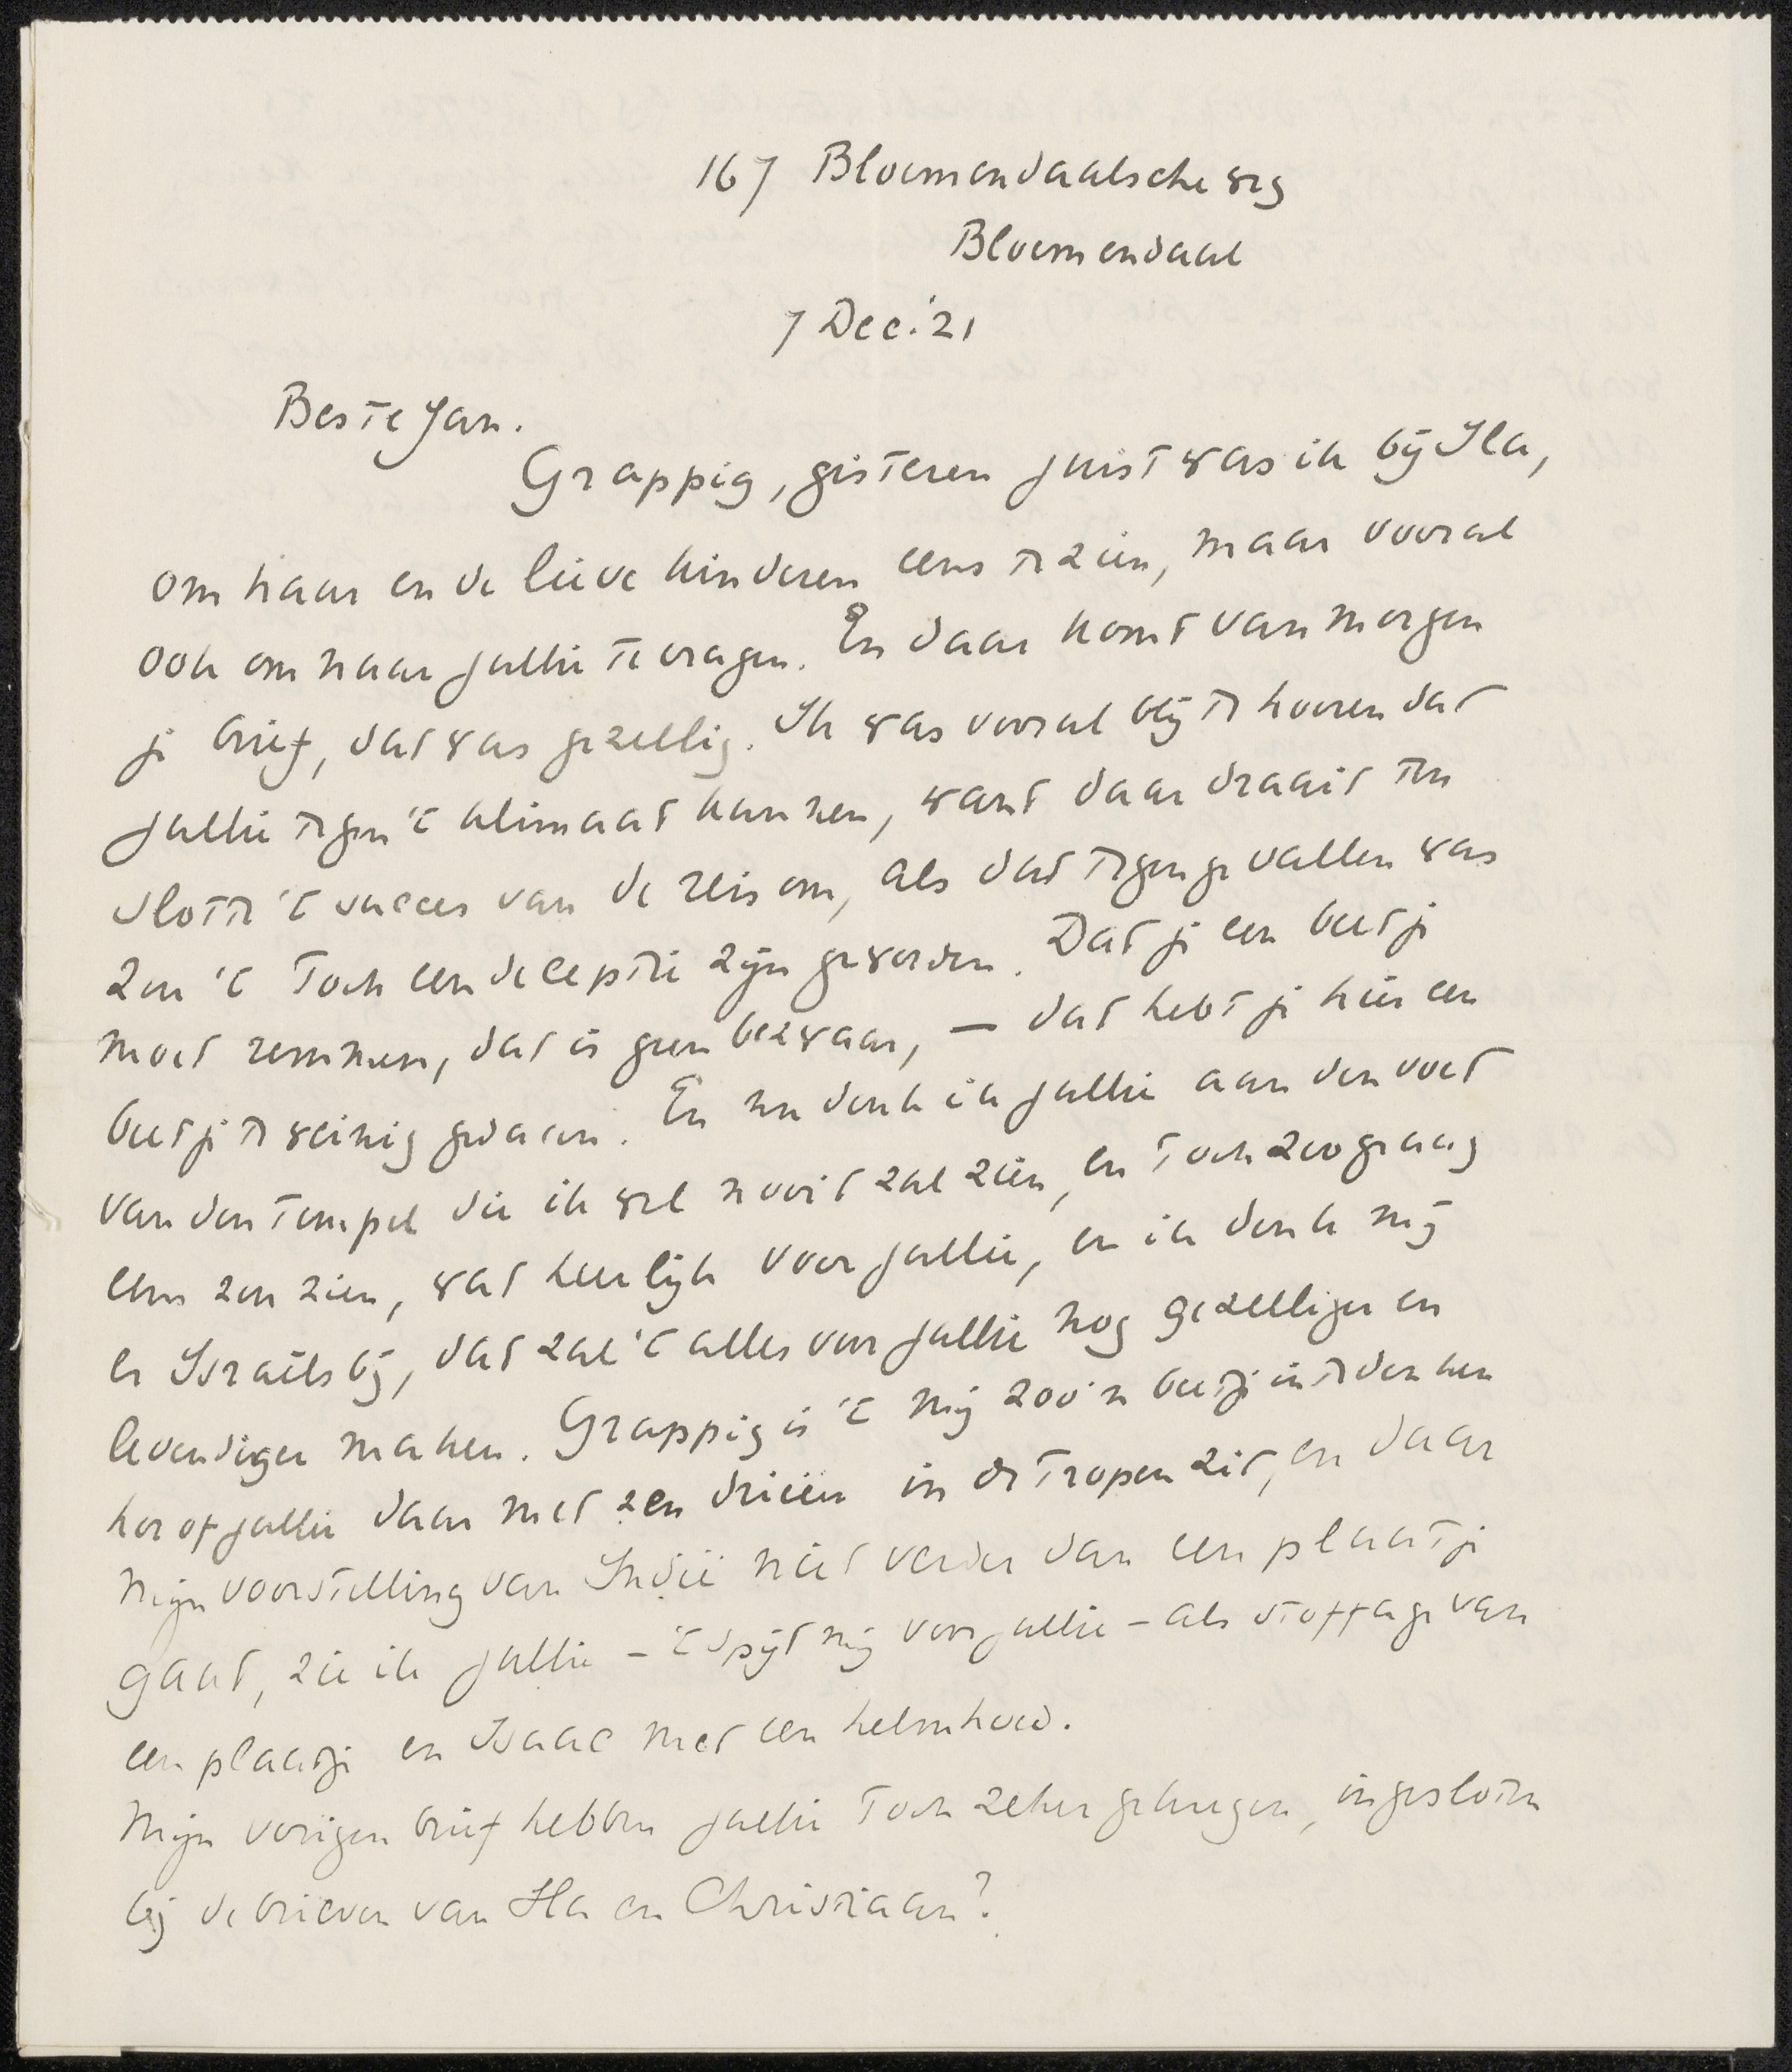 167 Bloemendaalsche weg
Bloemendaal
7 Dec. '21
Beste Jan.
Grappig, gisteren juist was ik bij Ila,
om haar en de lieve kinderen eens te zien, maar vooral
ook om naar jullie te vragen. En daar komt van morgen
je brief, dat was gezellig. Ik was vooral blij te hooren dat
jullie tegen 't klimaat kunnen, want daar draait ten
slotte 't succes van de reis om, als dat tegengevallen was
zou 't toch een deceptie zijn geworden. Dat je een beetje
moet remmen, dat is geen bezwaar, — dat hebt je hier een
beetje te weinig gedaan. En nu denk ik jullie aan den voet
van den tempel die ik wel nooit zal zien, en toch zoo graag
eens zou zien, wat heerlijk voor jullie, en ik denk mij
er Israëls bij, dat zal 't alles voor jullie nog gezelliger en
levendiger maken. Grappig is 't mij zoo'n beetje in te denken
hoe of jullie daar met zen drieën in de tropen zit, en daar
mijn voorstelling van Indië niet verder dan een plaatje
gaat, zie ik jullie – 't spijt mij voor jullie – als stoffage van
een plaatje en Isaac met een helmhoed.
Mijn vorigen brief hebben jullie toch zeker gekregen, ingesloten
bij de brieven van Ila en Christiaan?